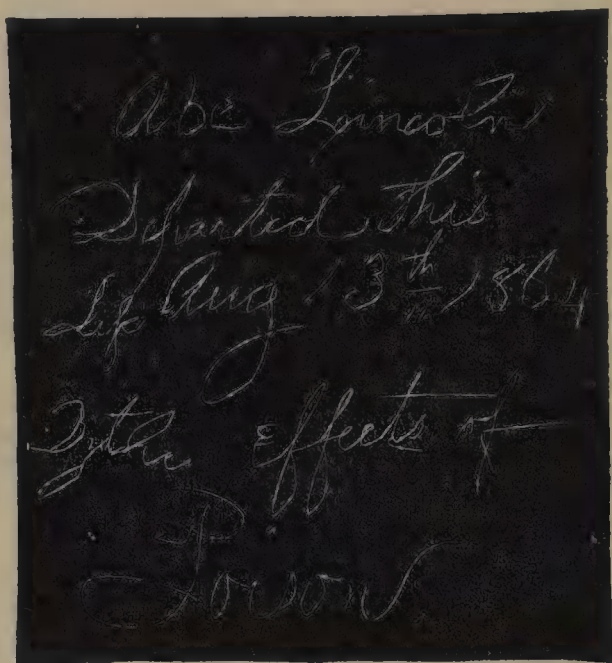 Abe Lincoln
Departed This
Life Aug 13th 1864
By the effects of
Poison